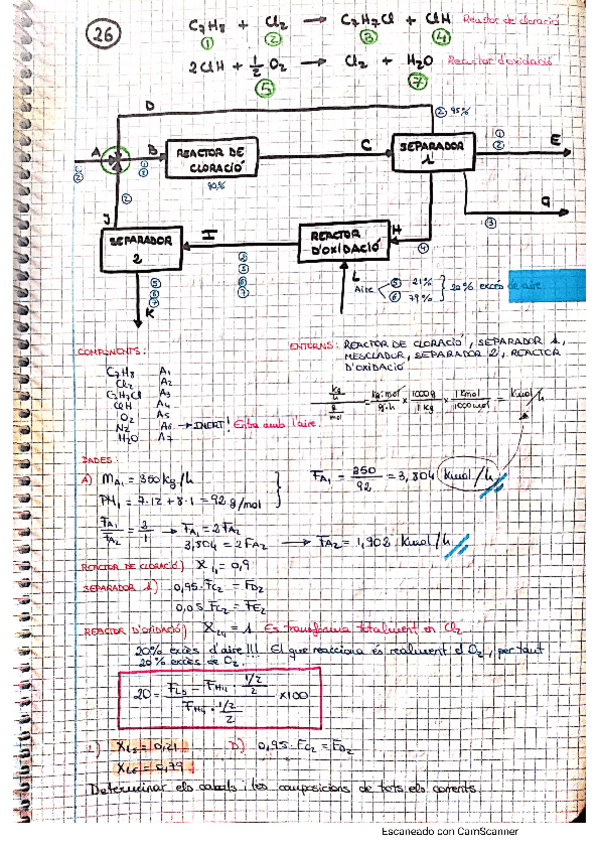 26
C7H8 + Cl2 → C7H7Cl + ClH Reactor de cloració
1 2 3 4
2ClH + 1/2 O2 → Cl2 + H2O Reactor d'oxidació
5 7
D
2 95%
A B REACTOR DE CLORACIÓ C SEPARADOR 1 1 2 E
2 1 2 90%
G
3
J
2
SEPARADOR 2 I REACTOR D'OXIDACIÓ H
4
2 5 6 7
5 6 7
K
L
Aire 5 21% 6 79% } 20% excés de aire
COMPONENTS:
ENTORNS: REACTOR DE CLORACIÓ, SEPARADOR 1,
MESCLADOR, SEPARADOR 2, REACTOR
D'OXIDACIÓ
C7H8 A1
Cl2 A2
C7H7Cl A3
ClH A4
O2 A5
N2 A6 → INERT! Entra amb l'aire.
H2O A7
kg/h / g/mol = kg·mol/g·h × 1000g/1kg × 1kmol/1000mol = kmol/h
DADES:
A) MA1 = 350 kg/h
PM1 = 7·12 + 8·1 = 92 g/mol
FA1 = 350/92 = 3,804 kmol/h
FA1/FA2 = 2/1 → FA1 = 2FA2
3,804 = 2FA2 → FA2 = 1,902 kmol/h
REACTOR DE CLORACIÓ) X1 = 0,9
SEPARADOR 1) 0,95·FC2 = FD2
0,05·FC2 = FE2
REACTOR D'OXIDACIÓ) X4 = 1 Es transforma totalment en Cl2
20% excés d'aire!!! El que reacciona és realment el O2, per tant
20% excés de O2.
20 = (FL5 - FH4 · 1/2 / 2) / (FH4 · 1/2 / 2) × 100
L) XL5 = 0,21
XL6 = 0,79
D) 0,95·FC2 = FD2
Determinar els cabals i les composicions de tots els corrents.
Escaneado con CamScanner